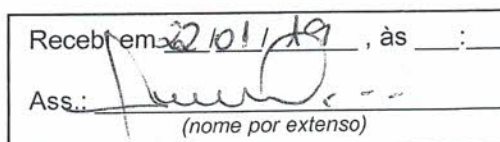 Recebi em 22/01/19, às ___:___
Ass.:
(nome por extenso)